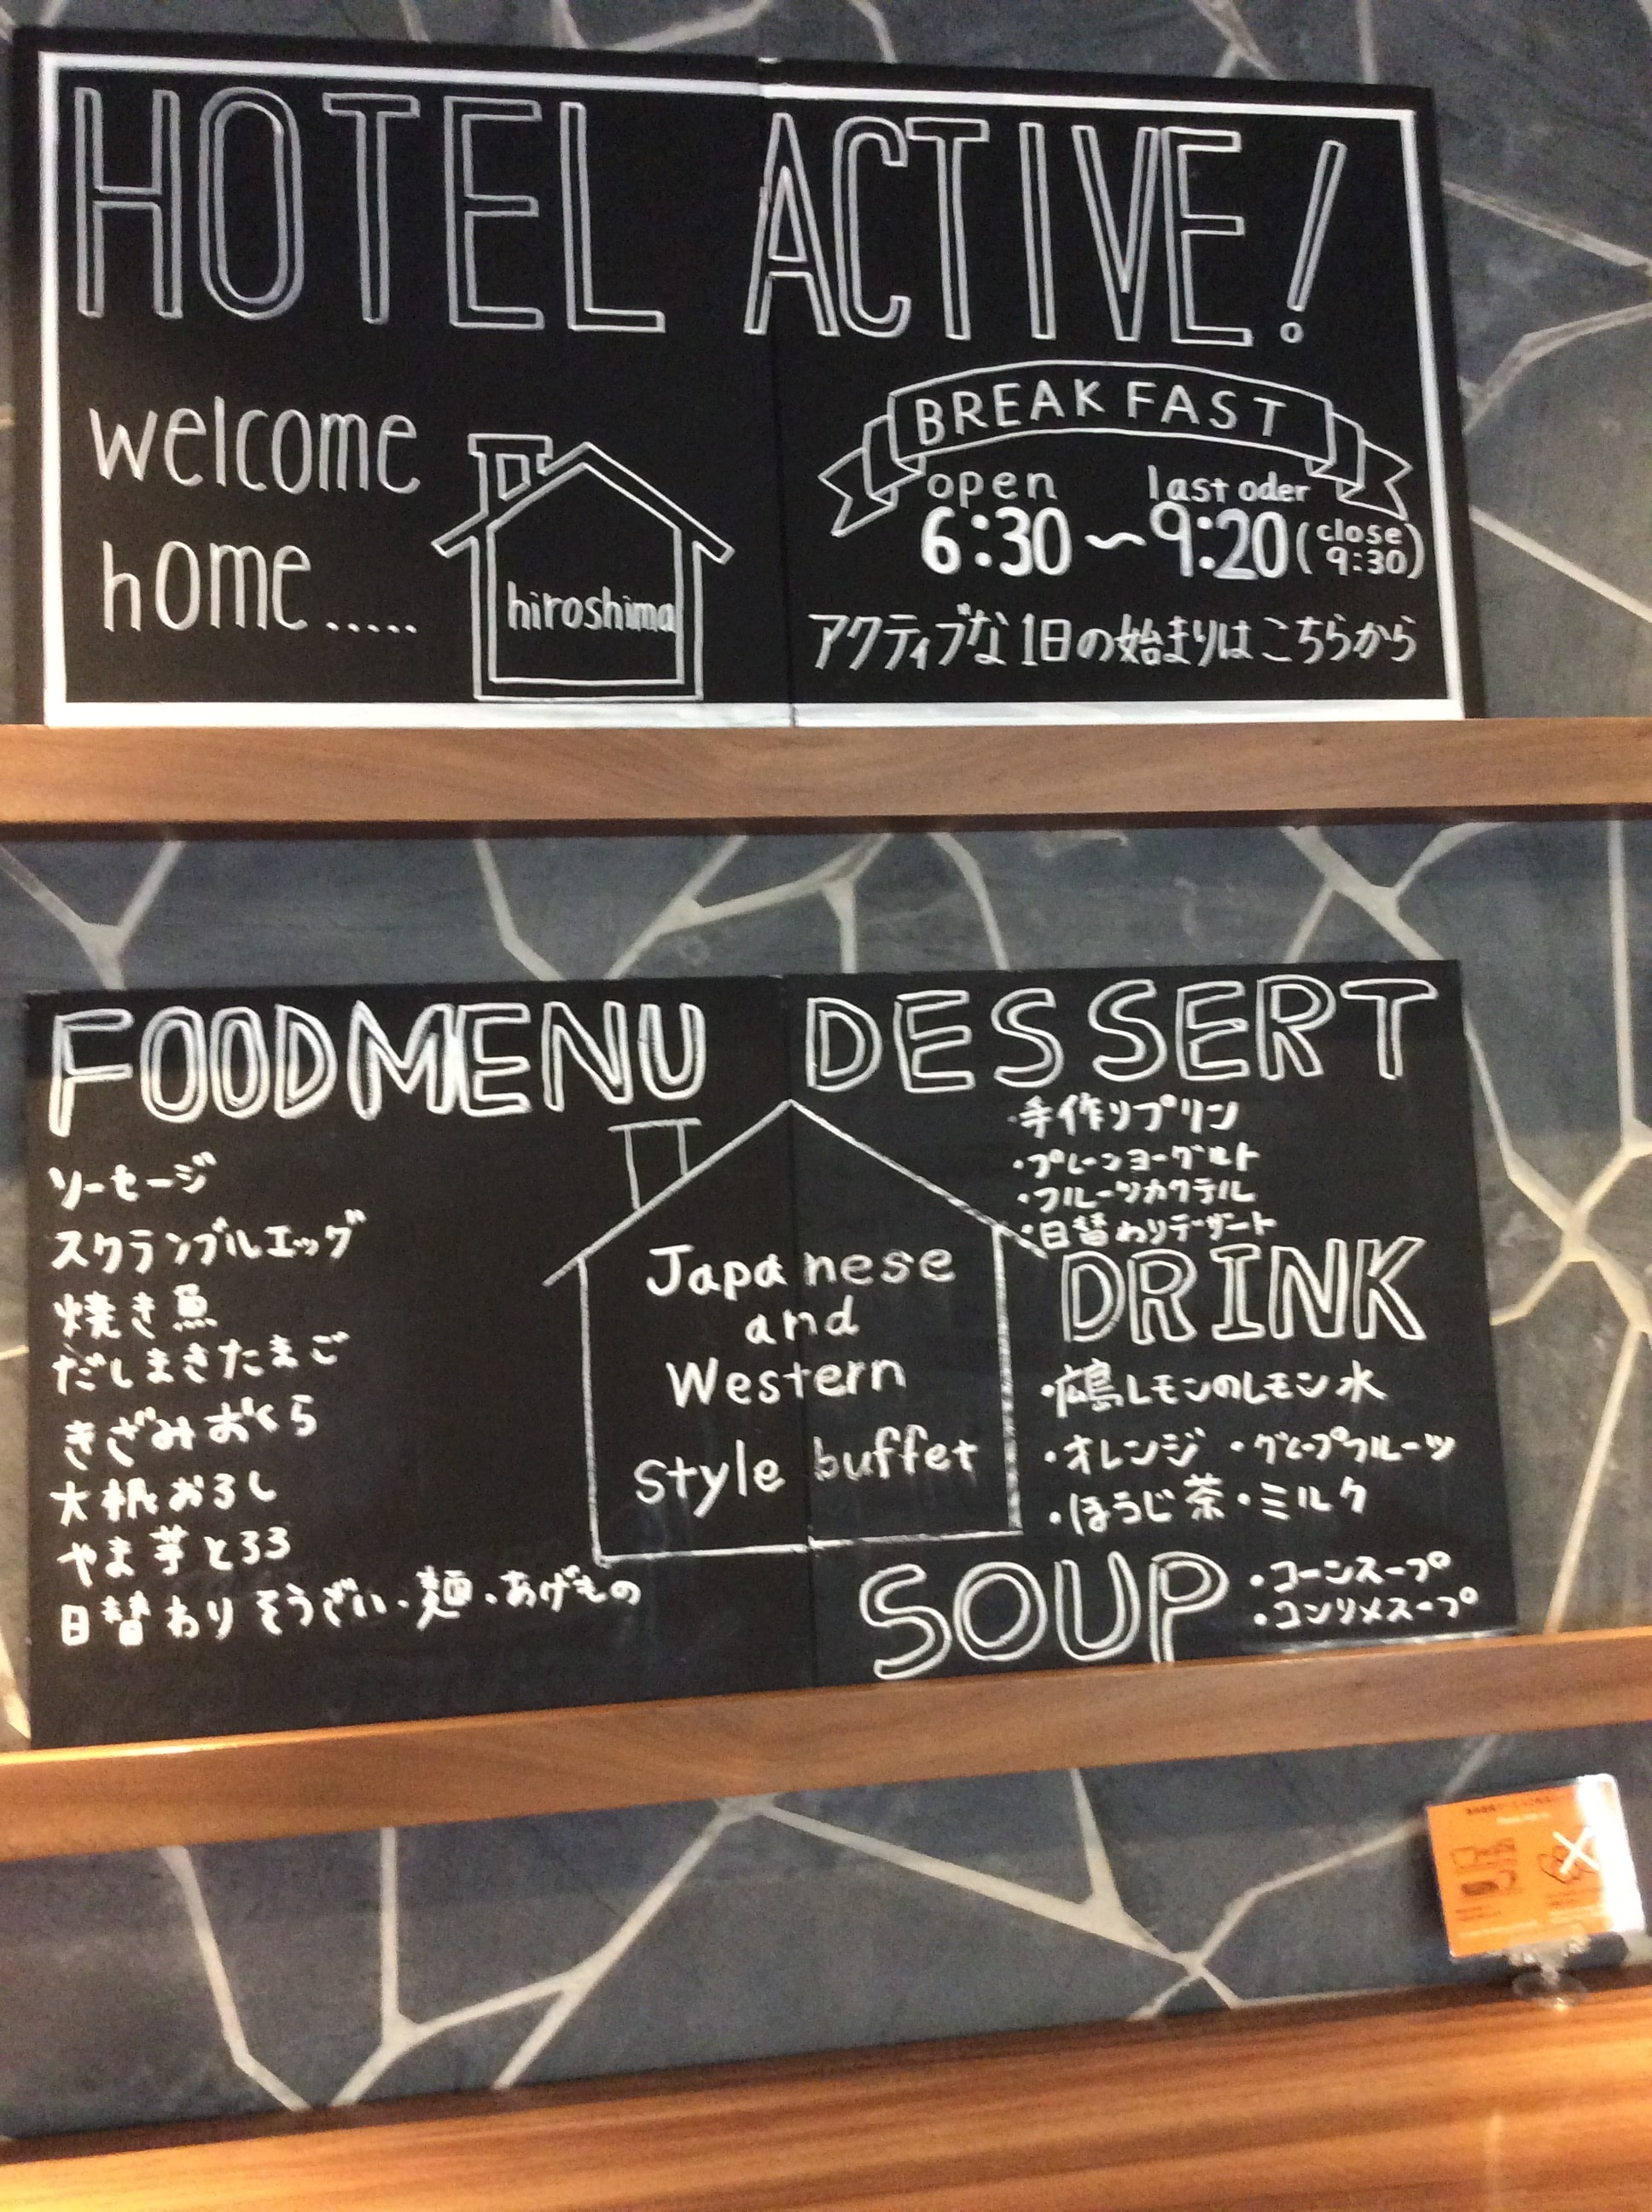 HOTEL ACTIVE!
welcome
home.....
hiroshima
BREAKFAST
open last oder
6:30〜9:20(close 9:30)
アクティブな1日の始まりはこちらから
FOODMENU
ソーセージ
スクランブルエッグ
焼き魚
だしまきたまご
きざみおくら
大根おろし
やま芋とろろ
日替わりそうざい・麺・あげもの
Japanese
and
Western
style buffet
DESSERT
・手作りプリン
・プレーンヨーグルト
・フルーツカクテル
・日替わりデザート
DRINK
・広島レモンのレモン水
・オレンジ ・グレープフルーツ
・ほうじ茶・ミルク
SOUP
・コーンスープ
・コンソメスープ